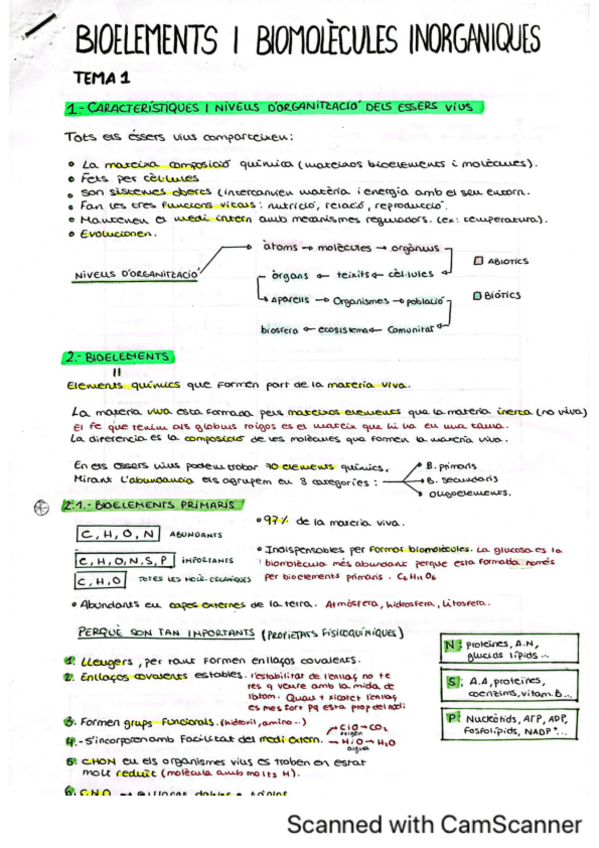 BIOELEMENTS I BIOMOLÈCULES INORGANIQUES
TEMA 1
1.- CARACTERÍSTIQUES I NIVELLS D'ORGANITZACIÓ DELS ESSERS VIUS
Tots els éssers vius comparteixen:
• La mateixa composició química (mateixos bioelements i molècules).
• Fets per cèl·lules
• Son sistemes oberts (intercanvien matèria i energia amb el seu entorn.
• Fan les tres funcions vitals: nutrició, relació, reproducció.
• Mantenen el medi intern amb mecanismes reguladors. (ex: temperatura).
• Evolucionen.
NIVELLS D'ORGANITZACIÓ
àtoms → molècules → orgànuls
òrgans ← teixits ← cèl·lules
Aparells → Organismes → població
biosfera ← ecosistema ← Comunitat
ABIOTICS
BIÒTICS
2.- BIOELEMENTS
Elements químics que formen part de la materia viva.
La materia viva esta formada pels mateixos elements que la materia inerta (no viva)
El fe que tenim als glòbuls roigos es el mateix que hi ha en una
La diferencia es la composició de les molècules que formen la materia viva.
En els essers vius podem trobar 70 elements químics.
Mirant l'abundancia els agrupem en 3 categories:
B. primaris
B. secundaris
oligoelements.
2.1.- BIOELEMENTS PRIMARIS
C, H, O, N ABUNDANTS
C, H, O, N, S, P IMPORTANTS
C, H, O TOTES LES MOLÈC. ORGANIQUES
• 97% de la materia viva.
• Indispensables per formar biomolècules. La glucosa es la
biomolècula més abundant perque esta formada només
per bioelements primaris. C6 H12 O6
• Abundants en capes externes de la terra. Atmósfera, hidrosfera, litosfera.
PERQUÈ SON TAN IMPORTANTS (PROPIETATS FISICOQUÍMIQUES)
1. Lleugers, per tant formen enllaços covalents.
2. Enllaços covalents estables. l'estabilitat de l'enllaç no te
res q veure amb la mida de
l'atom. Quan + xicotet l'enllaç
es mes fort pq esta prop del nucli
3. Formen grups funcionals. (hidroxil, amino...)
4.- S'incorporen amb facilitat del medi extern.
C i O → CO2
oxigen
H i O → H2O
aigua
5. CHON en els organismes vius es troben en estat
molt reduït (molècula amb molts H).
N: proteïnes, A.N,
glucids lípids...
S: A.A, proteïnes,
coenzims, vitam. B...
P: Nucleòtids, ATP, ADP,
fosfolípids, NADP+...
6. CNO
Scanned with CamScanner